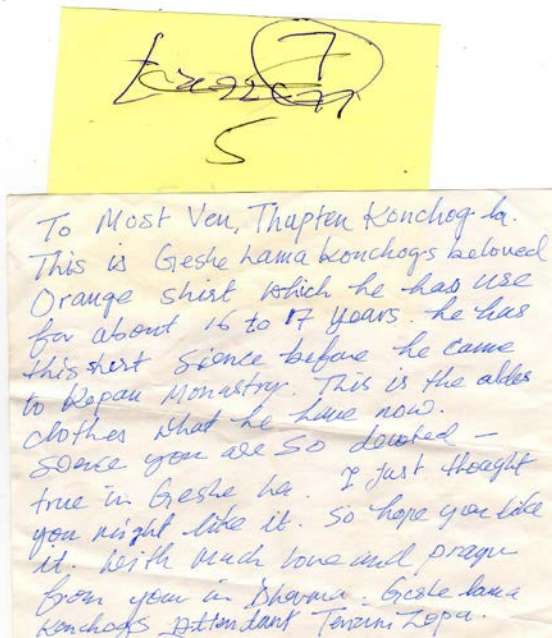 7
5
To Most Ven, Thupten Konchog la.
This is Geshe Lama Konchogs beloved
Orange shirt which he has use
for about 16 to 17 years. he has
this shirt Sience before he came
to Kopan Monastry. This is the aldes
clothes what he have now.
Sience you are so devoted –
true in Geshe La. I just thought
you might like it. So hope you like
it. With Much love and prayr
from your in Dharma. Geshe lama
Konchogs Attendant Tenzin Zopa.